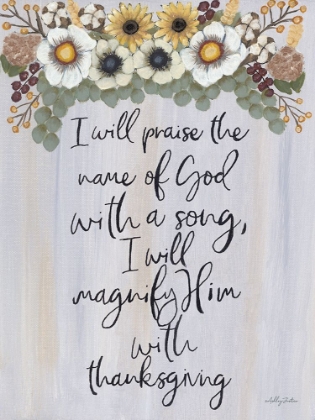 I will praise the
name of God
with a song,
I will
magnify Him
with
thanksgiving